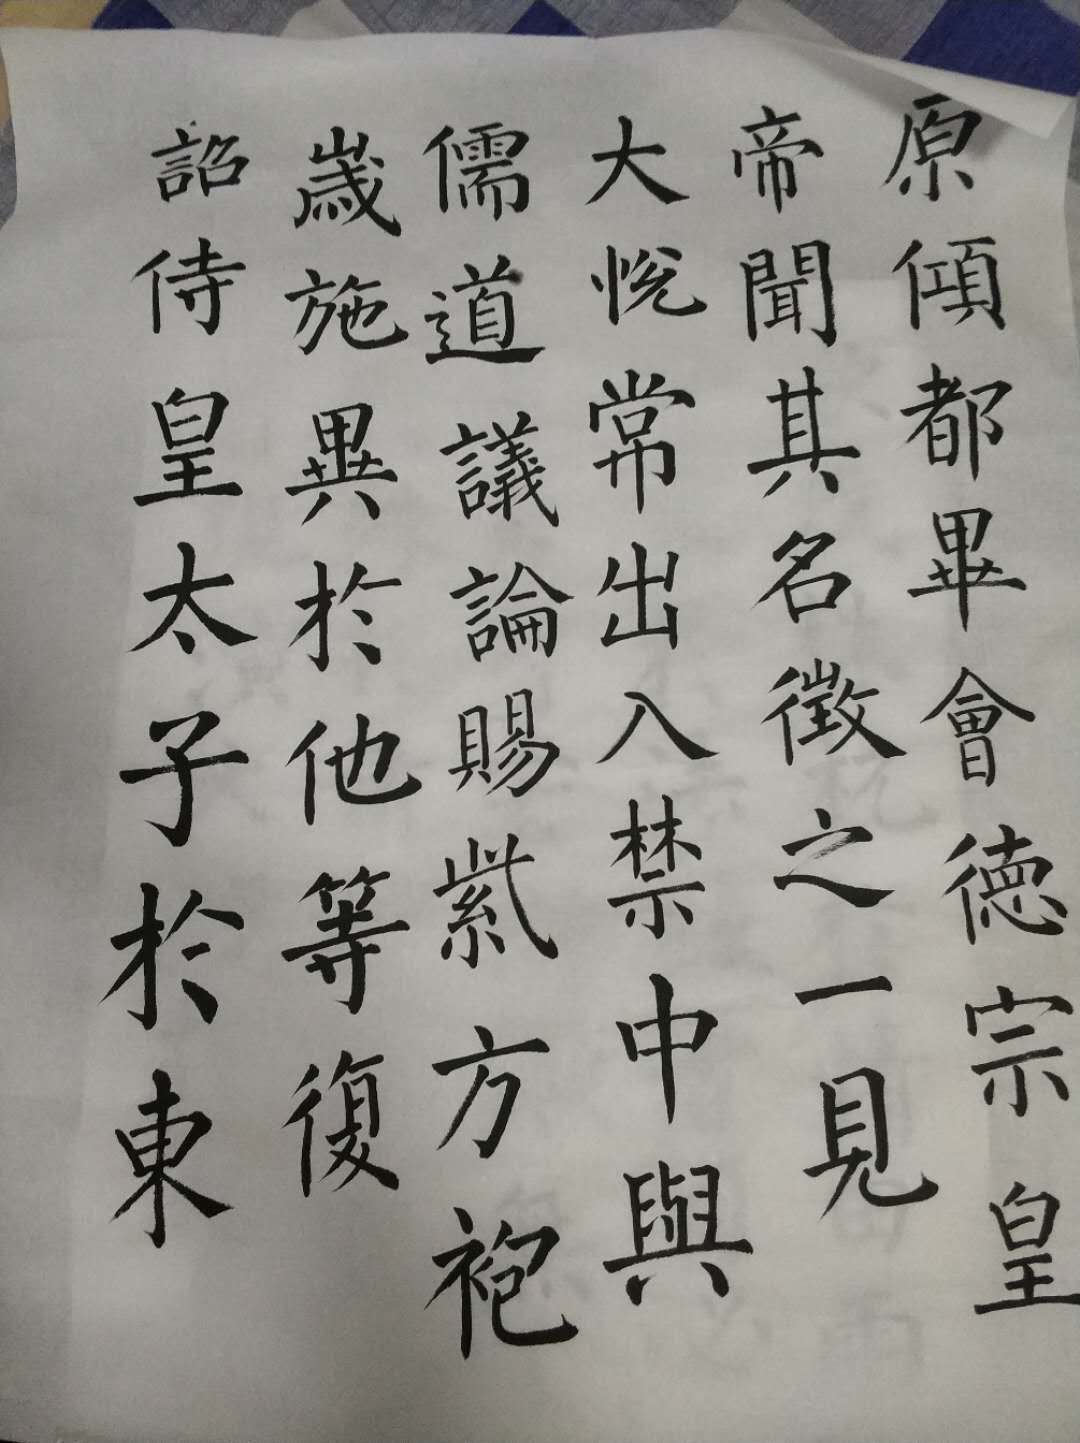 原傾都畢會德宗皇
帝聞其名徵之一見
大悅常出入禁中與
儒道議論賜紫方袍
歲施異於他等復
詔侍皇太子於東